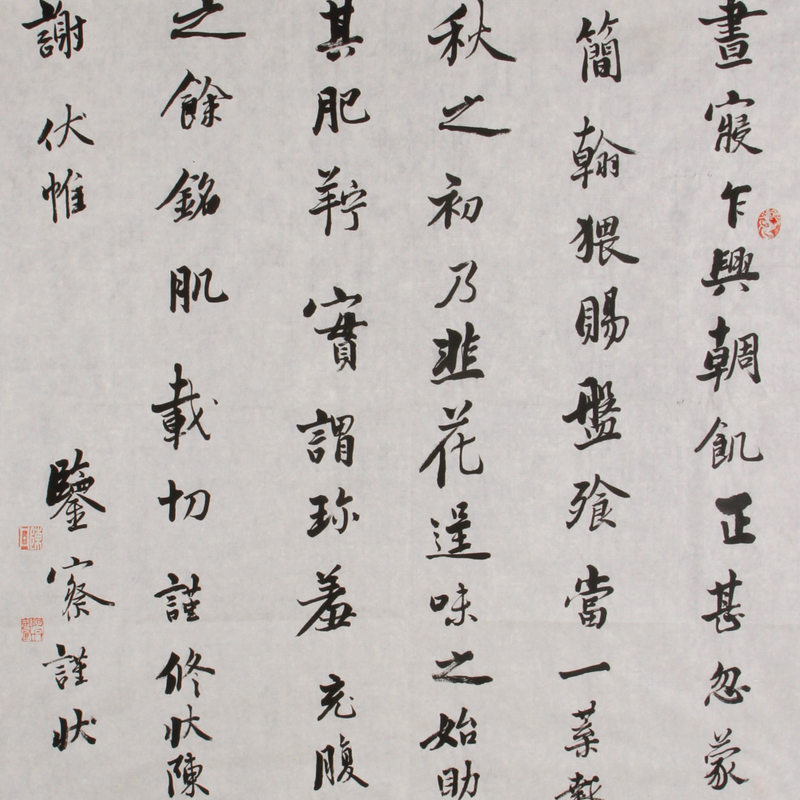 晝寢乍興輖飢正甚忽蒙
簡翰猥賜盤飧當一葉報
秋之初乃韭花逞味之始助
其肥羜實謂珍羞充腹
之餘銘肌載切謹修狀陳
謝伏惟
鑒察謹狀